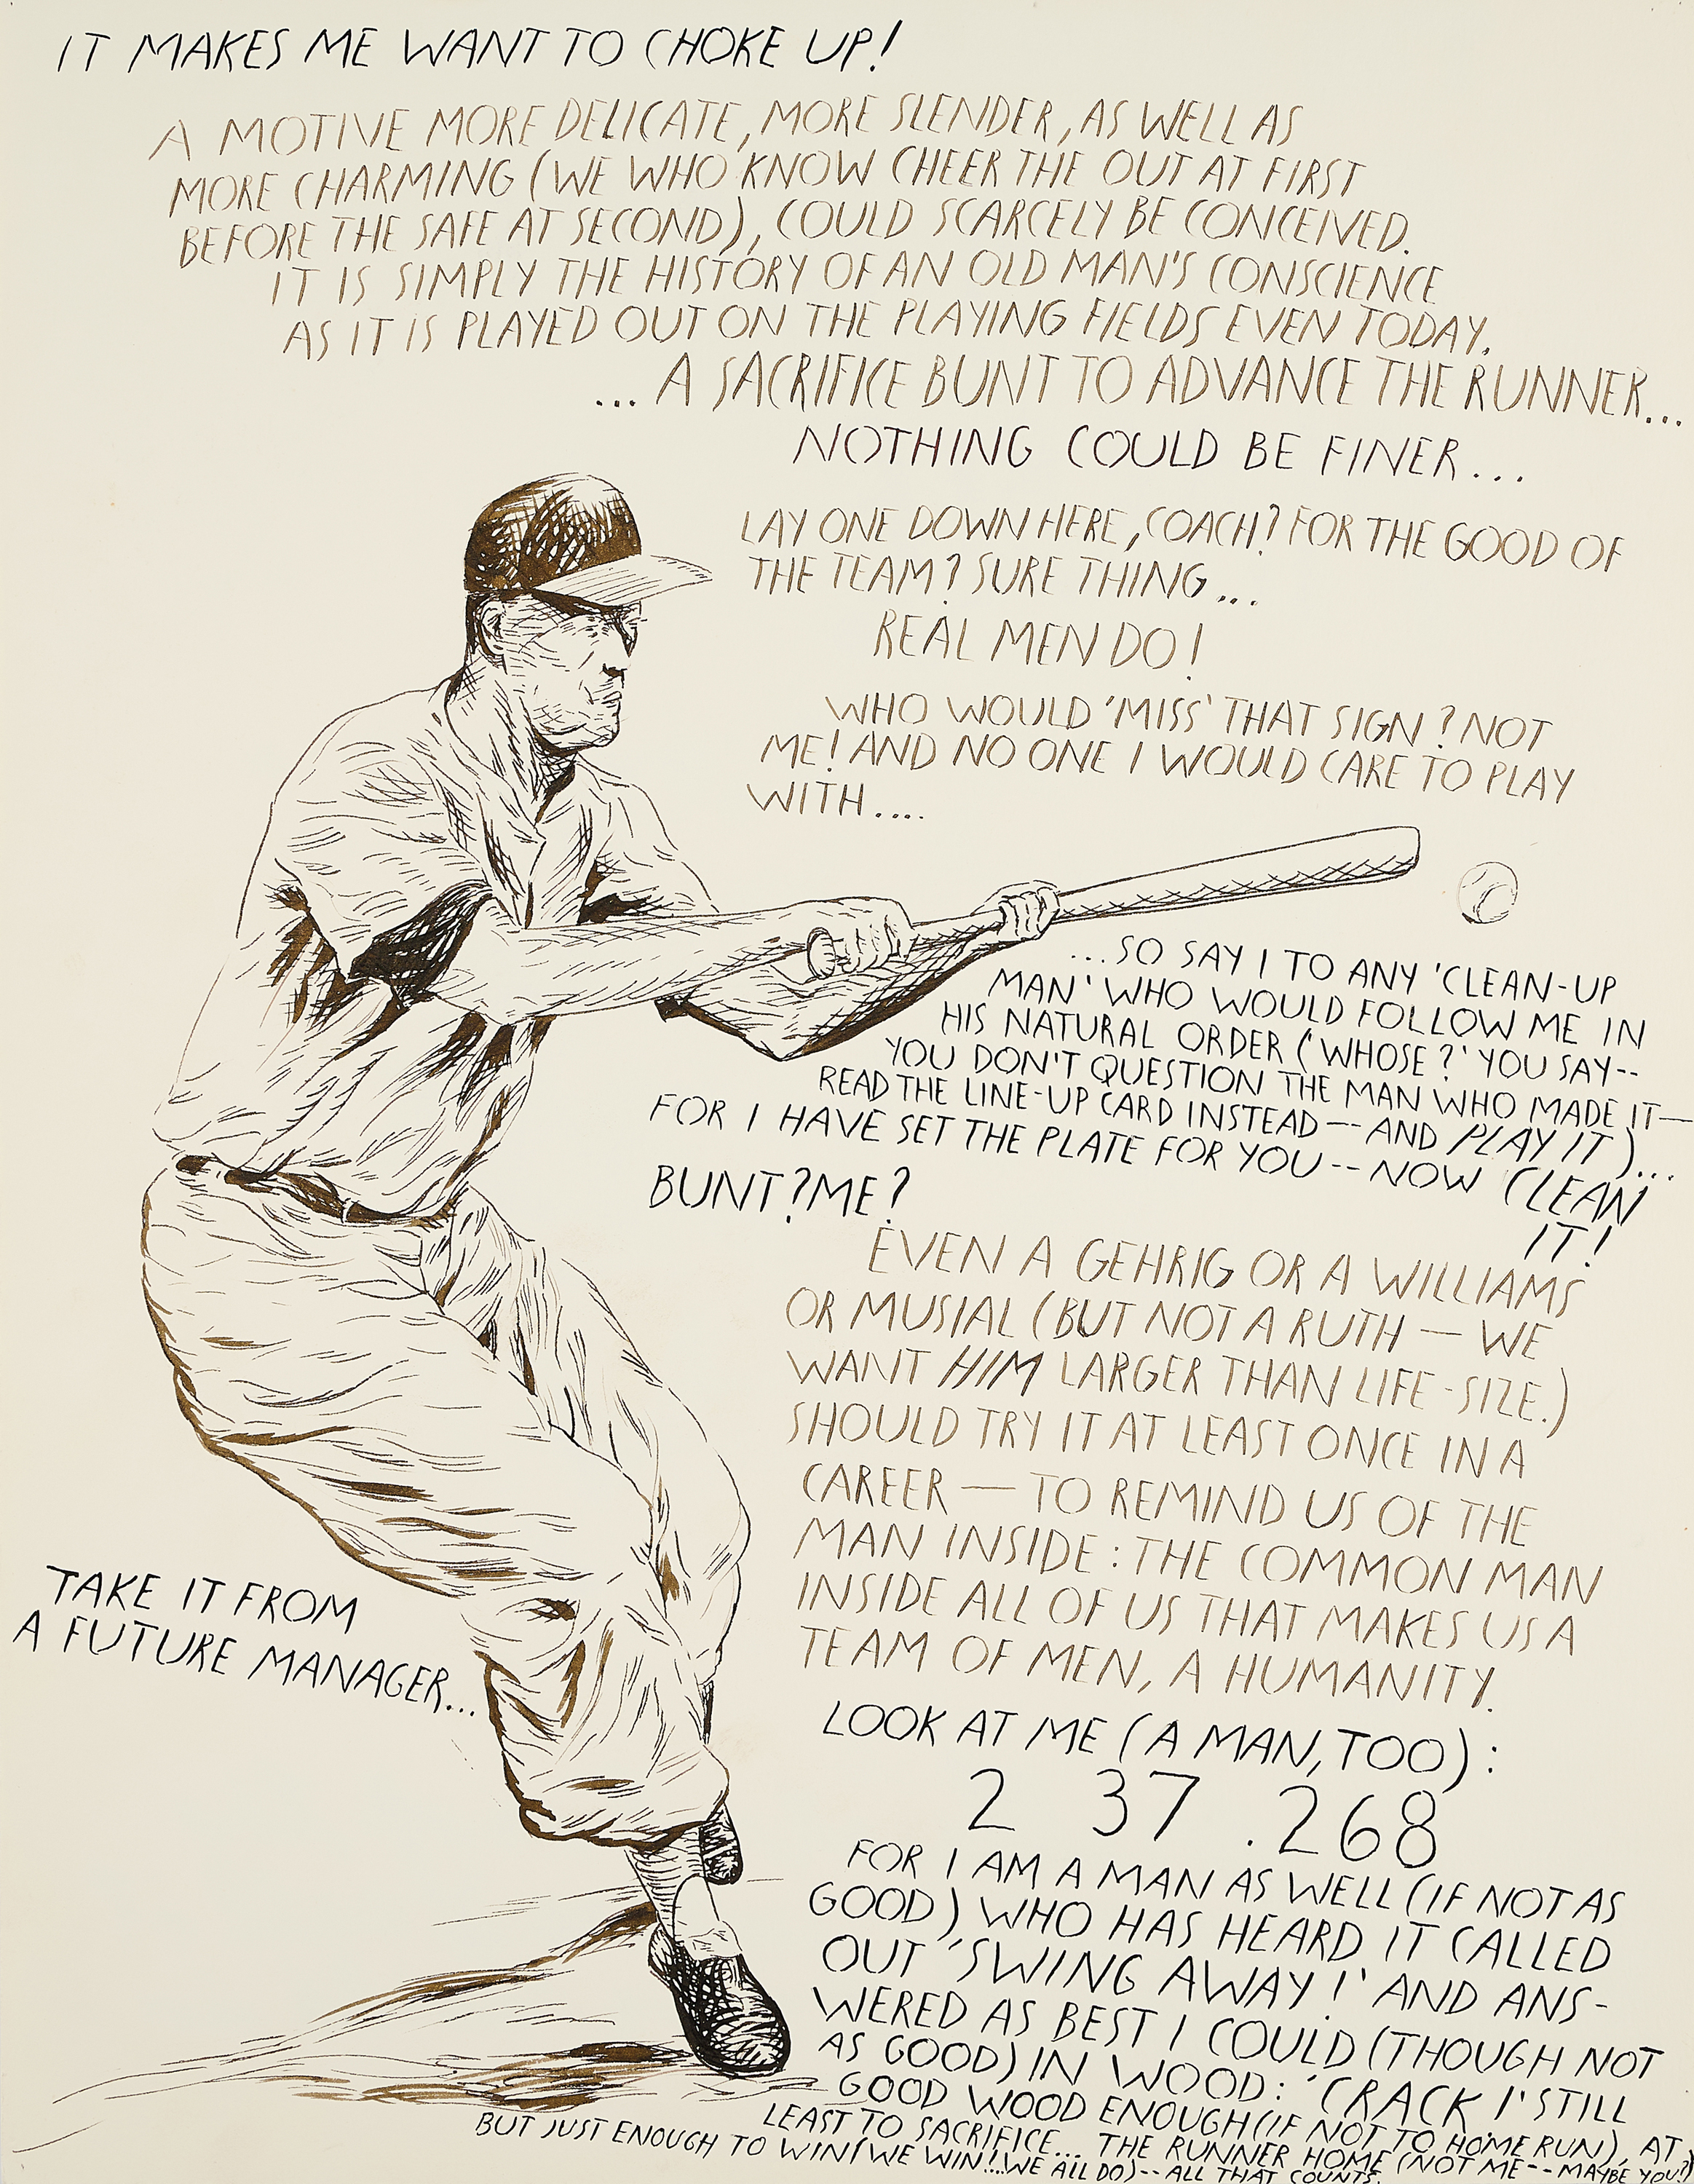 IT MAKES ME WANT TO CHOKE UP!
A MOTIVE MORE DELICATE, MORE SLENDER, AS WELL AS
MORE CHARMING (WE WHO KNOW CHEER THE OUT AT FIRST
BEFORE THE SAFE AT SECOND), COULD SCARCELY BE CONCEIVED.
IT IS SIMPLY THE HISTORY OF AN OLD MAN'S CONSCIENCE
AS IT IS PLAYED OUT ON THE PLAYING FIELDS EVEN TODAY.
... A SACRIFICE BUNT TO ADVANCE THE RUNNER...
NOTHING COULD BE FINER...
LAY ONE DOWN HERE, COACH? FOR THE GOOD OF
THE TEAM? SURE THING...
REAL MEN DO!
WHO WOULD 'MISS' THAT SIGN? NOT
ME! AND NO ONE I WOULD CARE TO PLAY
WITH....
...SO SAY I TO ANY 'CLEAN-UP
MAN' WHO WOULD FOLLOW ME IN
HIS NATURAL ORDER ('WHOSE?' YOU SAY--
YOU DON'T QUESTION THE MAN WHO MADE IT—
READ THE LINE-UP CARD INSTEAD -- AND PLAY IT)...
FOR I HAVE SET THE PLATE FOR YOU -- NOW CLEAN
IT!
BUNT? ME?
EVEN A GEHRIG OR A WILLIAMS
OR MUSIAL (BUT NOT A RUTH — WE
WANT HIM LARGER THAN LIFE-SIZE.)
SHOULD TRY IT AT LEAST ONCE IN A
CAREER — TO REMIND US OF THE
MAN INSIDE: THE COMMON MAN
INSIDE ALL OF US THAT MAKES US A
TEAM OF MEN, A HUMANITY.
TAKE IT FROM
A FUTURE MANAGER...
LOOK AT ME (A MAN, TOO):
2 37 .268
FOR I AM A MAN AS WELL (IF NOT AS
GOOD) WHO HAS HEARD IT CALLED
OUT 'SWING AWAY!' AND ANS-
WERED AS BEST I COULD (THOUGH NOT
AS GOOD) IN WOOD: 'CRACK!' STILL
GOOD WOOD ENOUGH (IF NOT TO HOME RUN), AT
LEAST TO SACRIFICE... THE RUNNER HOME (NOT ME -- MAYBE YOU?)
BUT JUST ENOUGH TO WIN (WE WIN!... WE ALL DO) -- ALL THAT COUNTS.